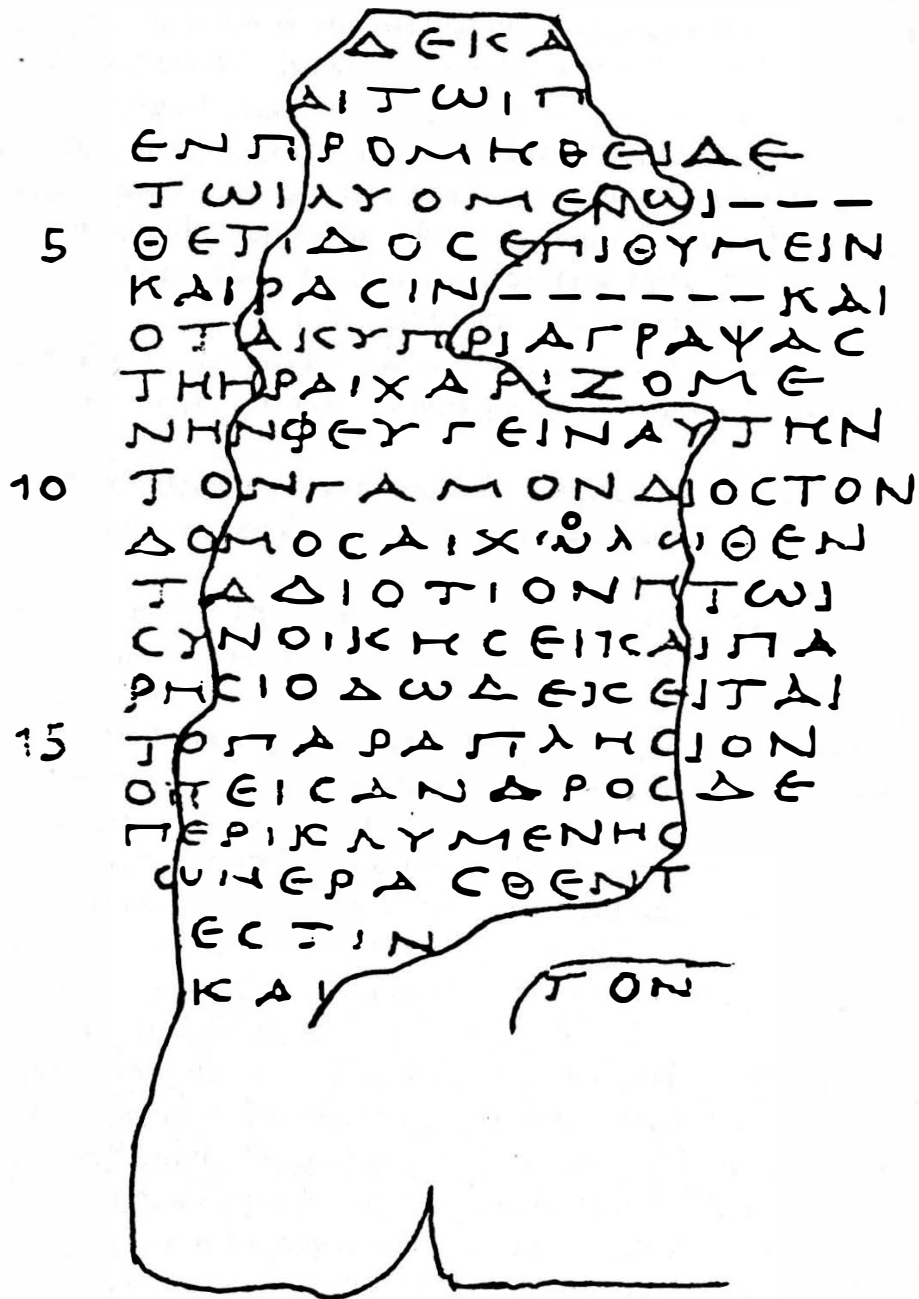 ΔΕΚΑ
ΑΙΤΩΙΠ
ΕΝΠΡΟΜΗΘΕΙΔΕ
ΤΩΙΛΥΟΜΕΝΩΙ---
5 ΘΕΤΙΔΟСΕΠΙΘΥΜΕΙΝ
ΚΑΙΡΑСΙΝ------ΚΑΙ
ΟΤΑΚΥΠΡΙΑΓΡΑΨΑС
ΤΗΗΡΑΙΧΑΡΙΖΟΜΕ
ΝΗΝΦΕΥΓΕΙΝΑΥΤΗΝ
10 ΤΟΝΓΑΜΟΝΔΙΟСΤΟΝ
ΤΑΔΙΟΤΙΟΝΗΤΩΙ
СΥΝΟΙΚΗСΕΙΚΑΙΠΑ
ΡΗСΙΟΔΩΔΕΚΕΙΤΑΙ
15 ΤΟΠΑΡΑΠΛΗСΙΟΝ
ΟΠΕΙСΑΝΔΡΟСΔΕ
ΠΕΡΙΚΛΥΜΕΝΗС
СΥΝΕΡΑСΘΕΝΤ
ΕСΤΙΝ
ΚΑΙ ΤΟΝ